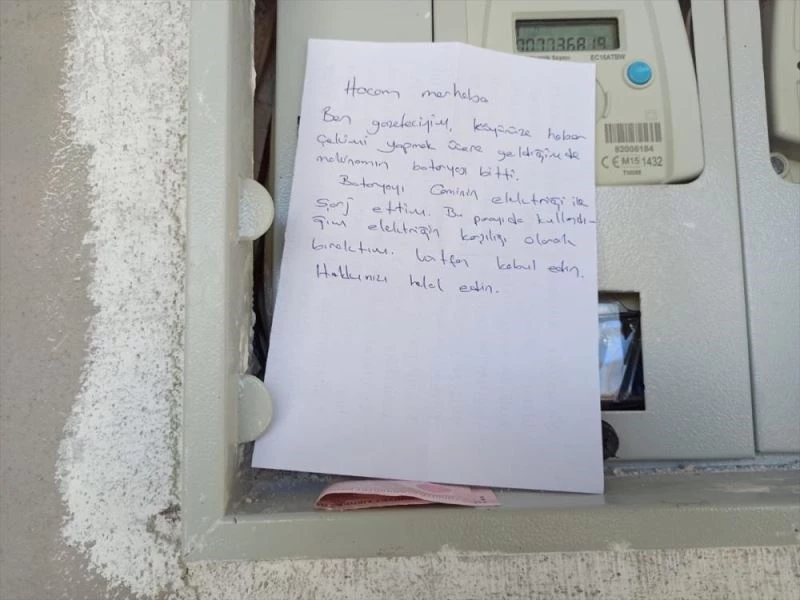 00036819
EC15ATBW
82006184
CE M15 1432
T10068
Hocam merhaba
Ben gazeteciyim, köyünüze haber
çekimi yapmak üzere geldiğimde
makinamın bataryası bitti.
Bataryayı Caminin elektriği ile
şarj ettim. Bu parayıda kullandı-
ğım elektriğin karşılığı olarak
bıraktım. Lütfen kabul edin.
Hakkınızı helal edin.